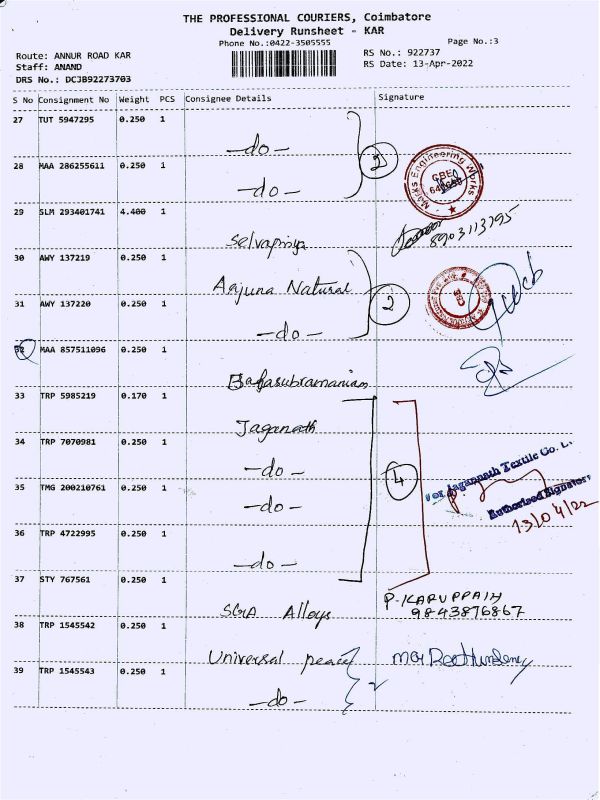 THE PROFESSIONAL COURIERS, Coimbatore
Delivery Runsheet - KAR
Phone No.:0422-3505555
Page No.:3
Route: ANNUR ROAD KAR
RS No.: 922737
Staff: ANAND
RS Date: 13-Apr-2022
DRS No.: DCJB92273703
S No Consignment No Weight PCS Consignee Details Signature
27 TUT 5947295 0.250 1
-do-
2
28 MAA 286255611 0.250 1
-do-
Marks Engineering Works
CBE
29 SLM 293401741 4.400 1
Selvapriya
8903113795
30 AWY 137219 0.250 1
Arjuna Natural
2
31 AWY 137220 0.250 1
-do-
32 MAA 857511096 0.250 1
Balasubramanian
33 TRP 5985219 0.170 1
Jaganath
34 TRP 7070981 0.250 1
-do-
4
For Jagannath Textile Co. L
35 TMG 200210761 0.250 1
-do-
Authorised Signatory
13/04/22
36 TRP 4722995 0.250 1
-do-
37 STY 767561 0.250 1
SGA Alloys
P-KARUPPAIH
9843876867
38 TRP 1545542 0.250 1
Universal peace
39 TRP 1545543 0.250 1
-do-
2